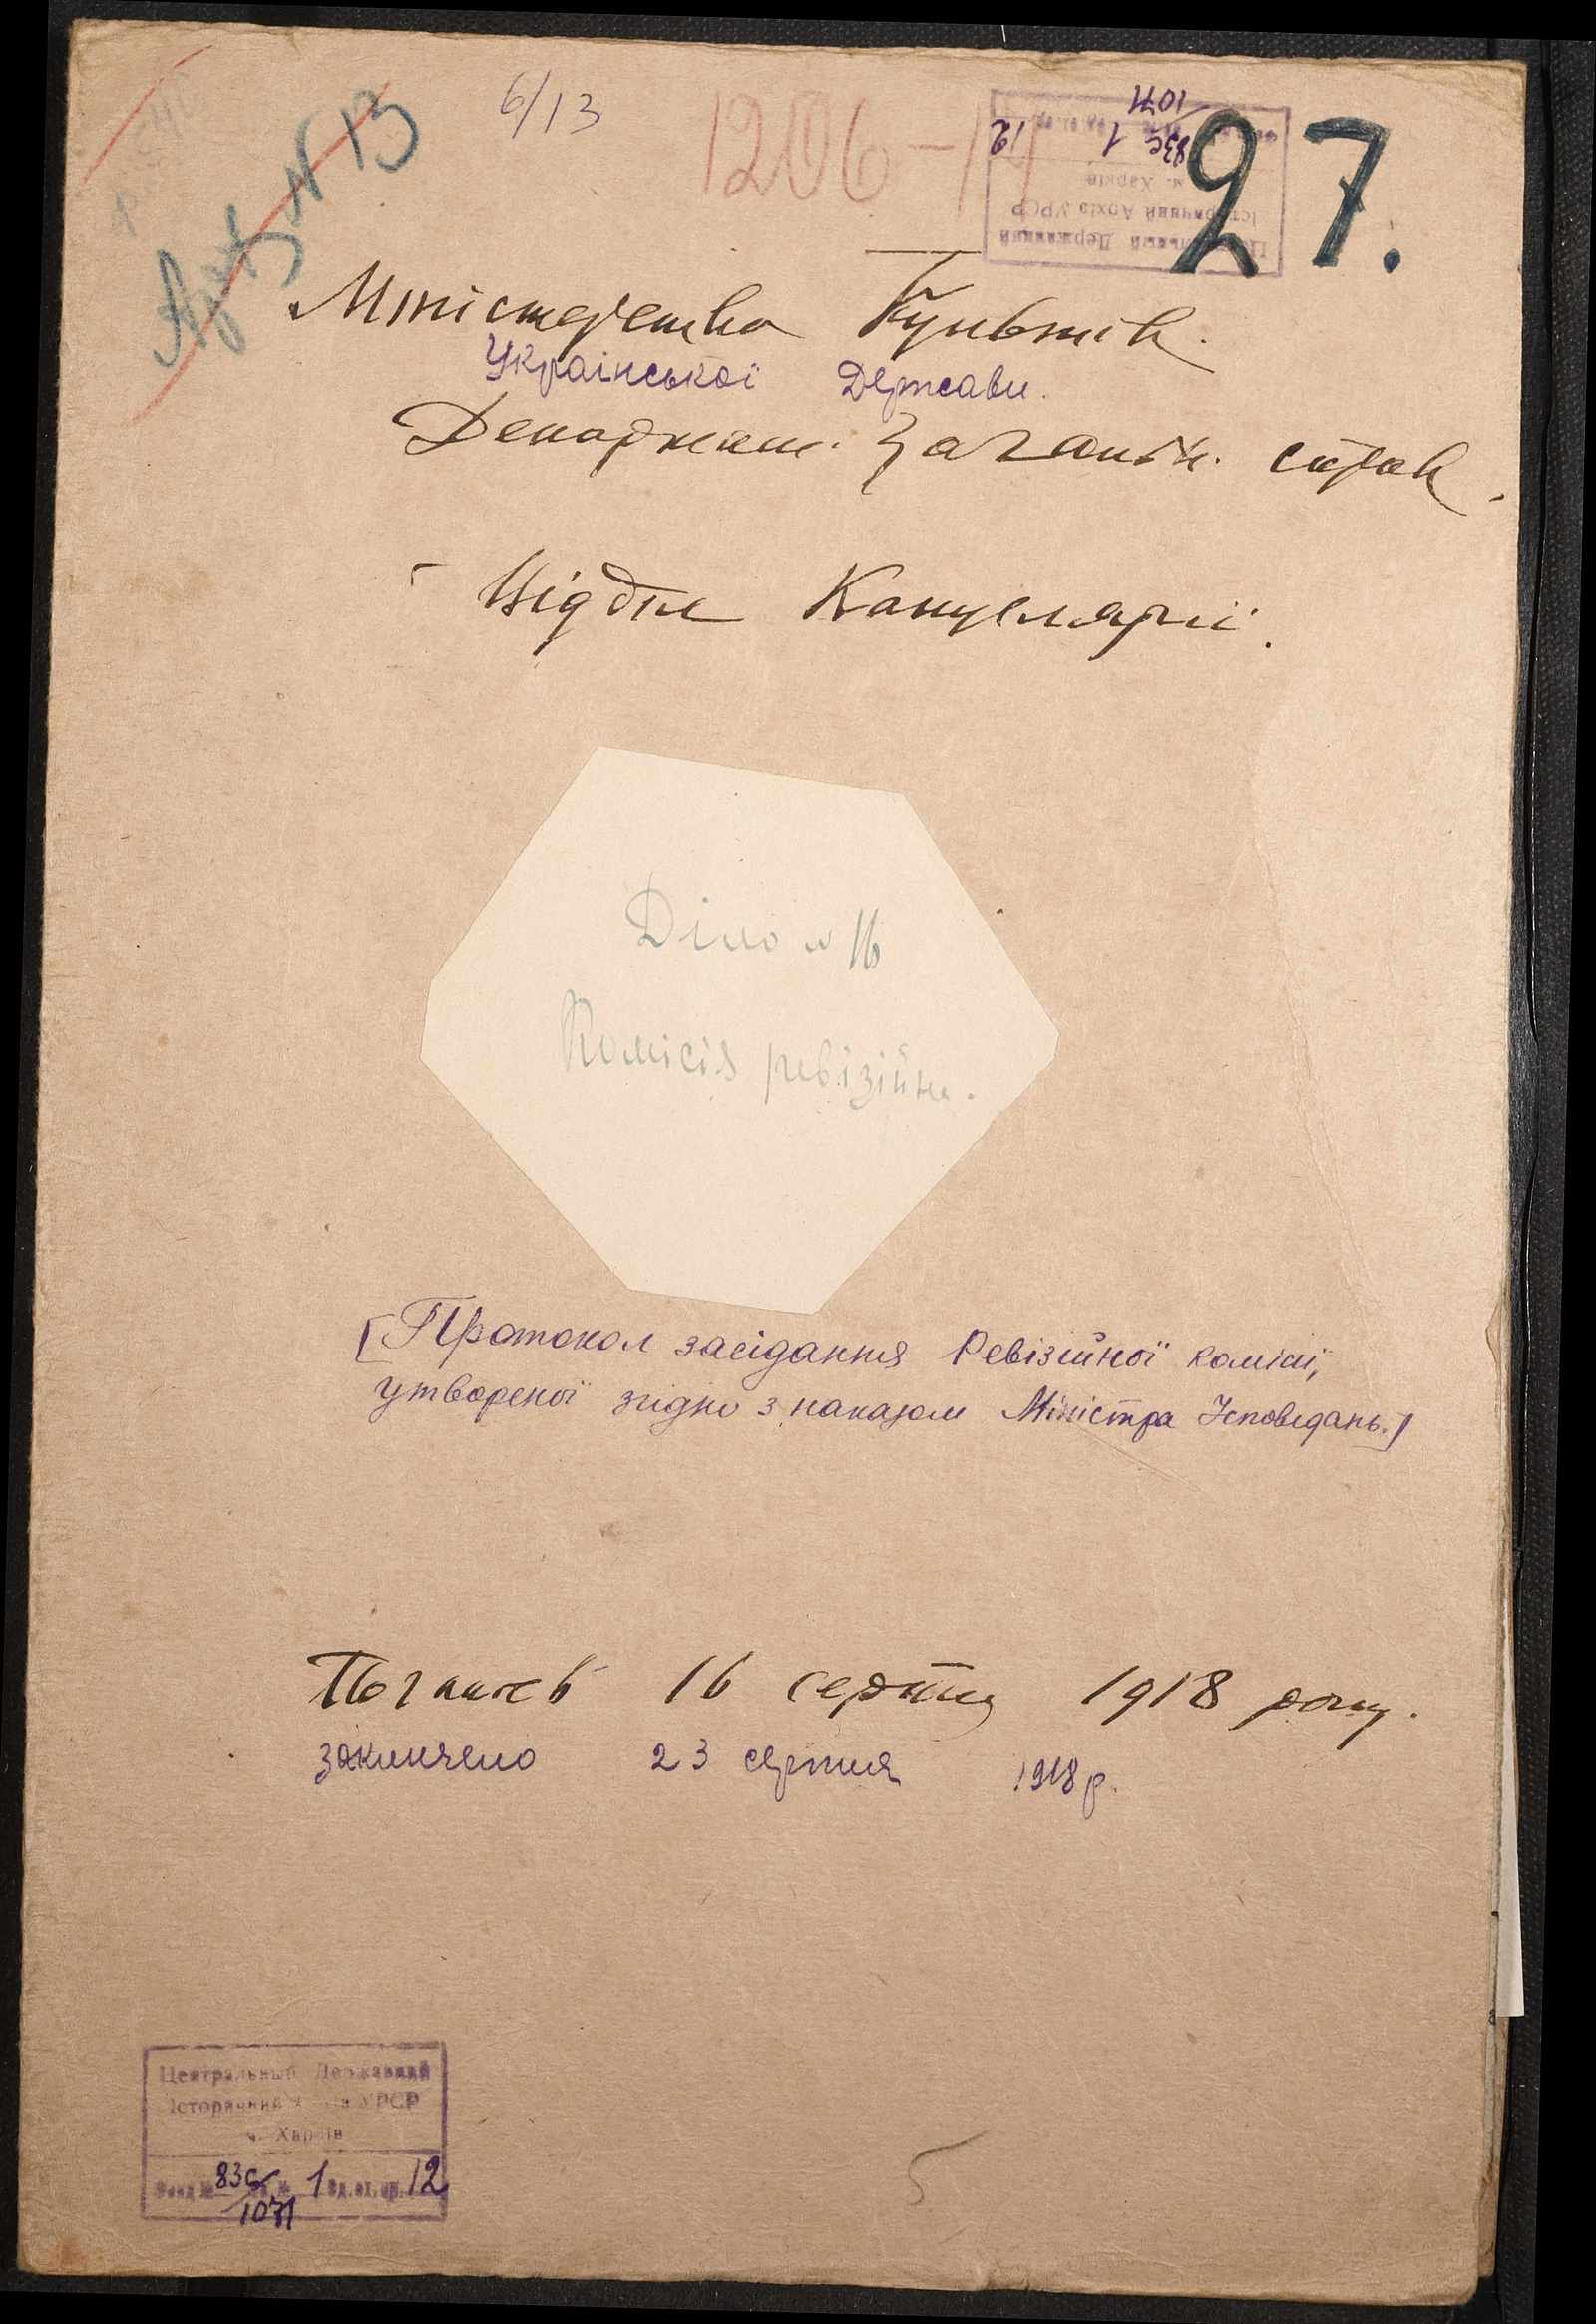 6/13
1206-
27.
№ 13
Міністерство Культів.
Української Держави.
Департам. Загальн. справ.
Відділ Канцелярії.
Діло № 16
Комісія ревізійна.
[Протокол засідання Ревізійної комісії,
утвореної згідно з наказом Міністра Ісповідань.]
16 серпня 1918 року.
закінчено 23 серпня 1918 р.
Центральный Державний
Історичний Архів УРСР
м. Харків
Фонд № 83с/1071 оп. № 1 од. зб. № 12
Центральный Державний
Історичний Архів УРСР
м. Харків
83с/1071 1 12
5